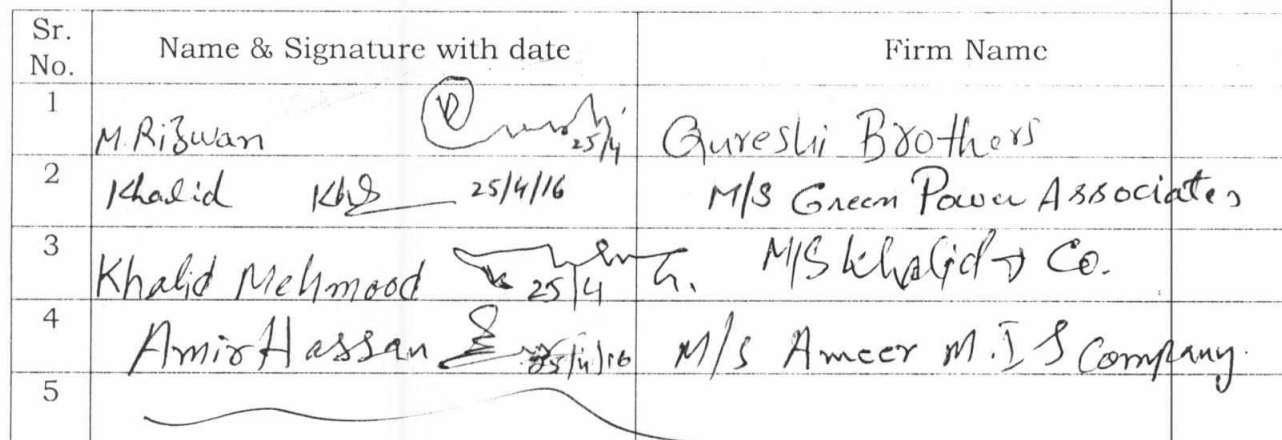 Sr. No. Name & Signature with date Firm Name
1 M. Rizwan 25/4 Qureshi Brothers
2 Khalid 25/4/16 M/S Green Power Associates
3 Khalid Mehmood 25/4 M/S Khalid & Co.
4 Amir Hassan 25/4/16 M/s Ameer M.I.S Company.
5